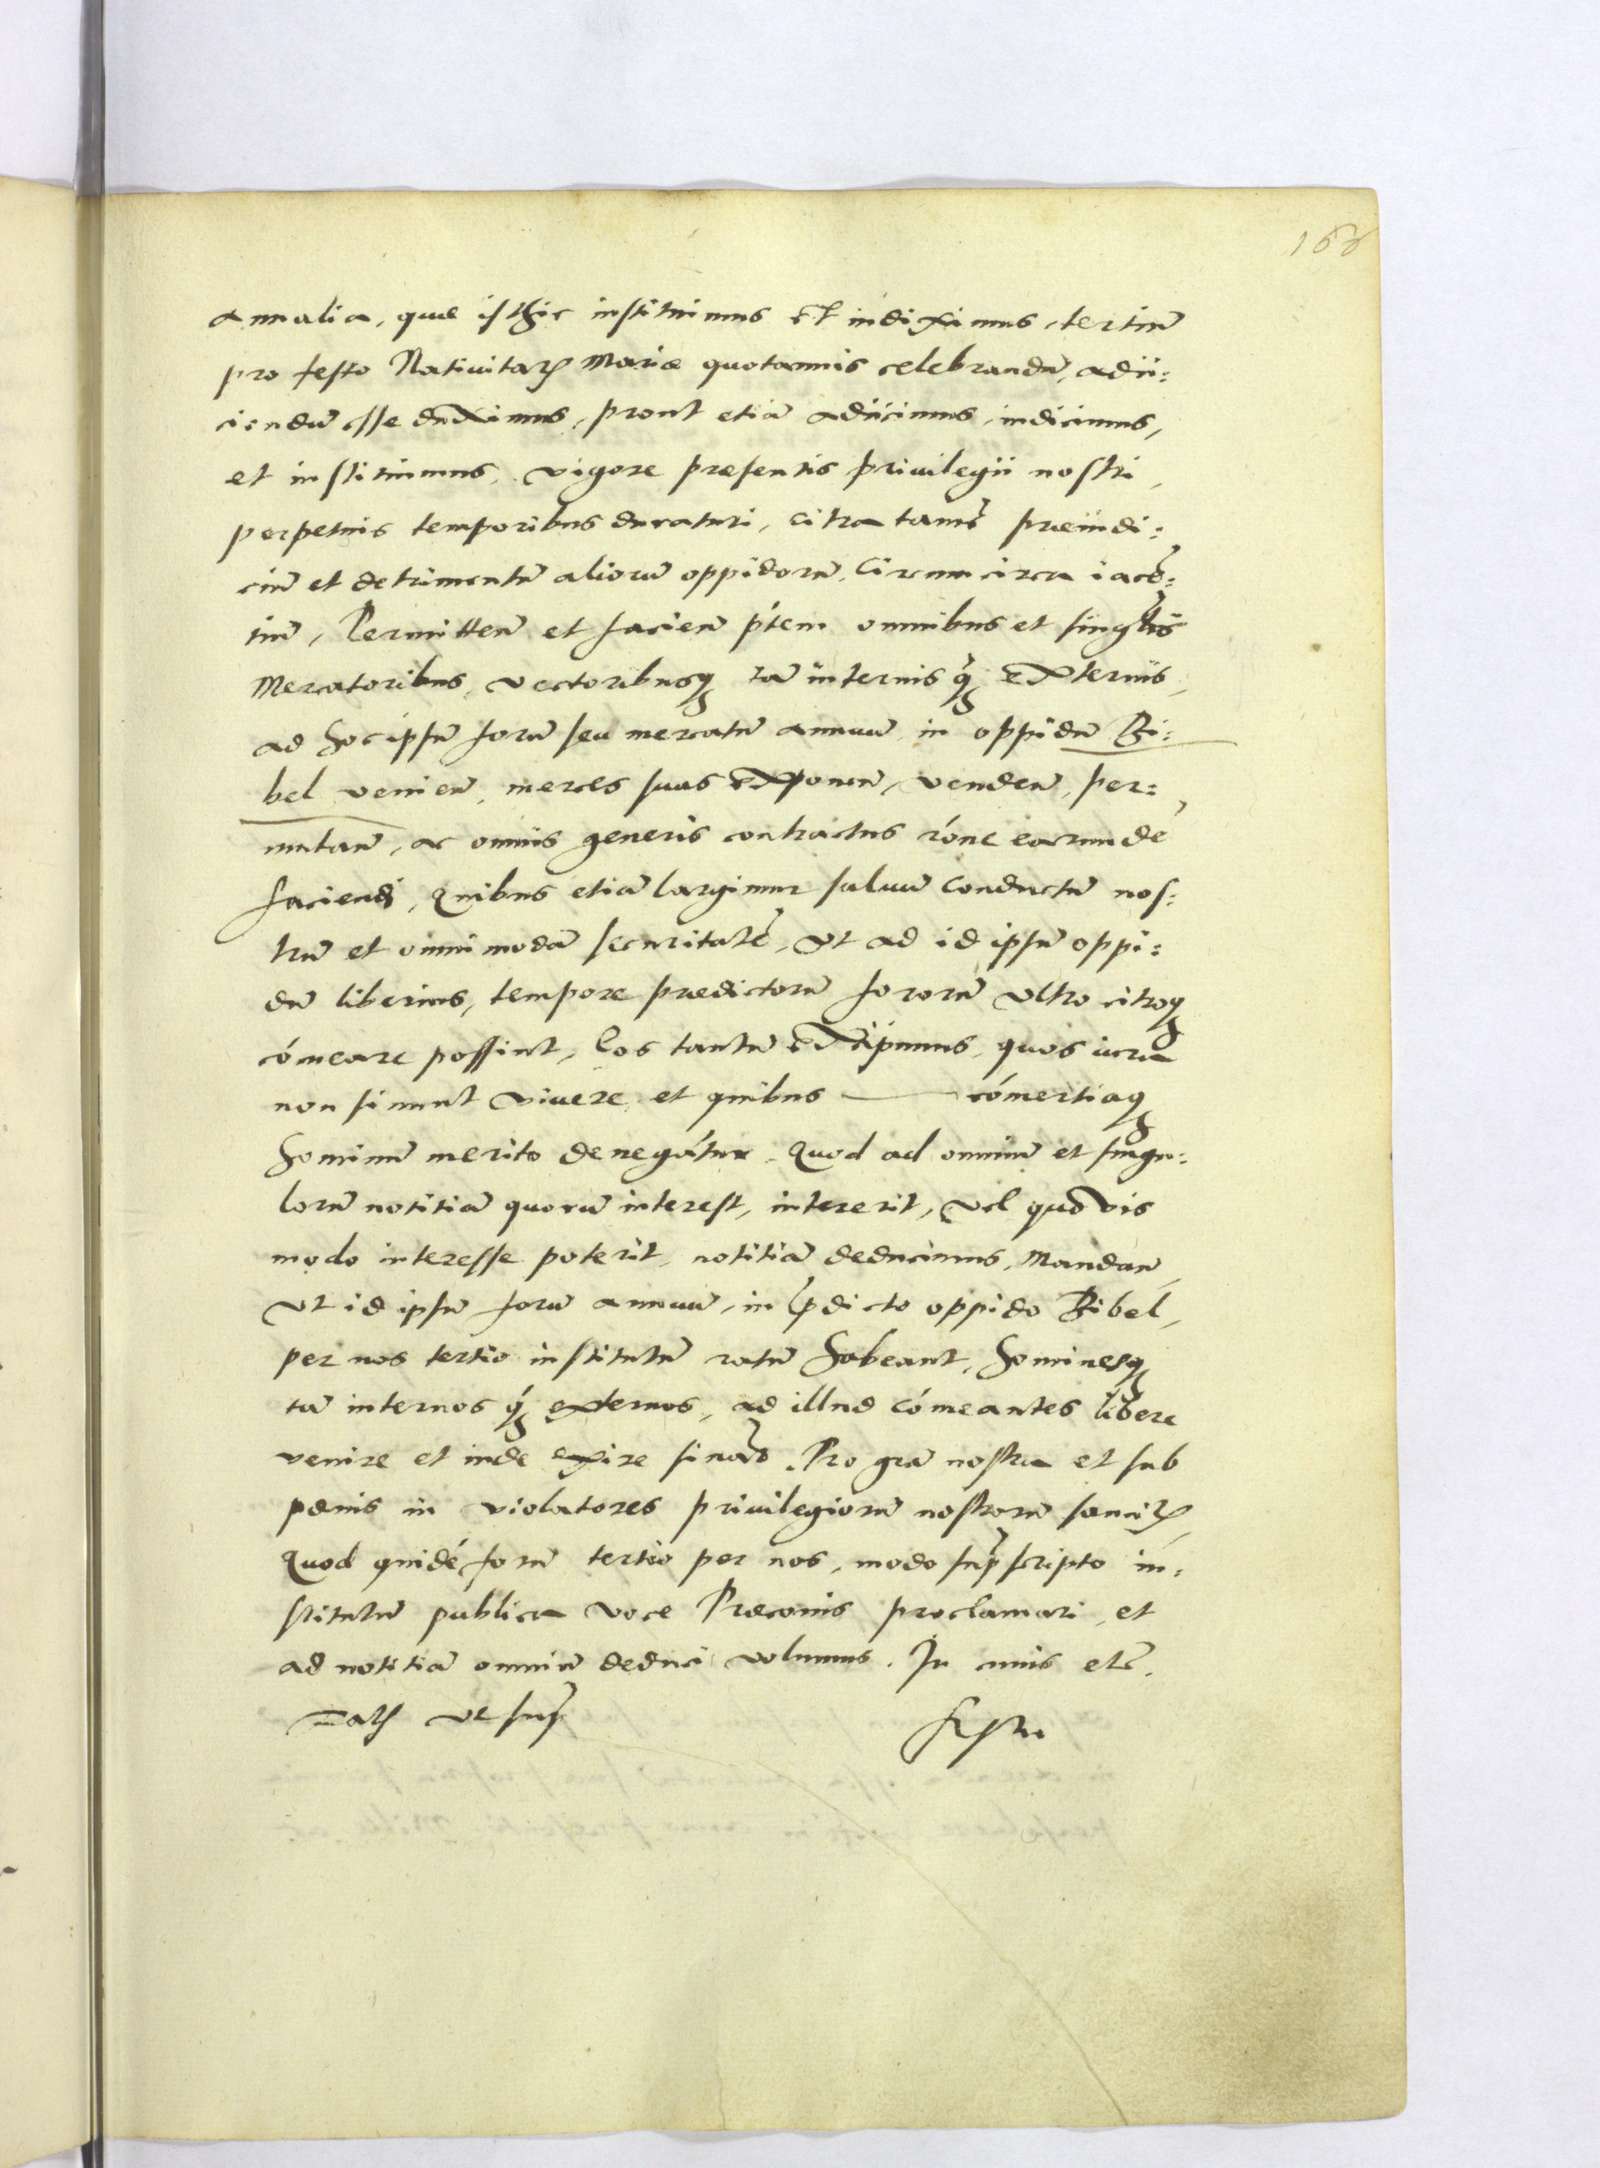 166
annalia, quae isthic instituimus et indiximus, tertiũ
pro festo Nativitatis Mariae quotannis celebrandũ, adii:
ciendũ esse duximus, prout etiã adiicimus, indicimus,
et instituimus, vigore praesentis privilegii nostri,
perpetuis temporibus duraturi, citra tamẽ praeiudi:
ciũ et detrimentũ aliorũ oppidorũ, Circumcirca iacẽ:
tiũ, Permitteñ et facieñ p̃tem omnibus et singlis
Mercatoribus, vectoribusq̃ tã internis q̃ externis,
ad hoc ipsũ forũ seu mercatũ annuũ in oppidũ Bi:
bel venieñ, merces suas exponeñ, vendeñ, per:,
mutañ, ac omnis generis contractus rone earundẽ
faciendi, Quibus etiã largimur salvũ Conductũ nos:
trũ et omnimodã securitatẽ, ut ad id ipsũ oppi:
dũ liberius, tempore praedictorũ fororũ ultro citroq̃
cõmeare possint, Eos tantũ excipimus, quos iura
non sinunt vivere et quibus —— cómertiaq̃
hominũ merito denegátur. Quod ad omniũ et singu:
lorũ notitiã quorũ interest, intererit, vel quovis
modo interesse poterit, notitiã deducimus, Mandañ,
ut id ipsũ forũ annuũ, in p̃dicto oppido Bibel,
per nos tertio institutũ ratũ habeant, hominesq̃
tã internos q̃ externos, ad illud cómeantes libere
venire et inde exire sinãt. Pro grã nostra et sub
paenis in violatores privilegiorũ nostrorũ sancitis,
Quod quidẽ forũ tertio per nos, modo sup̃scripto in:
stitutũ publica voce Praeconis proclamari, et
ad notitiã omniũ deduci volumus. In cuius etc.
Datis ut sup̃